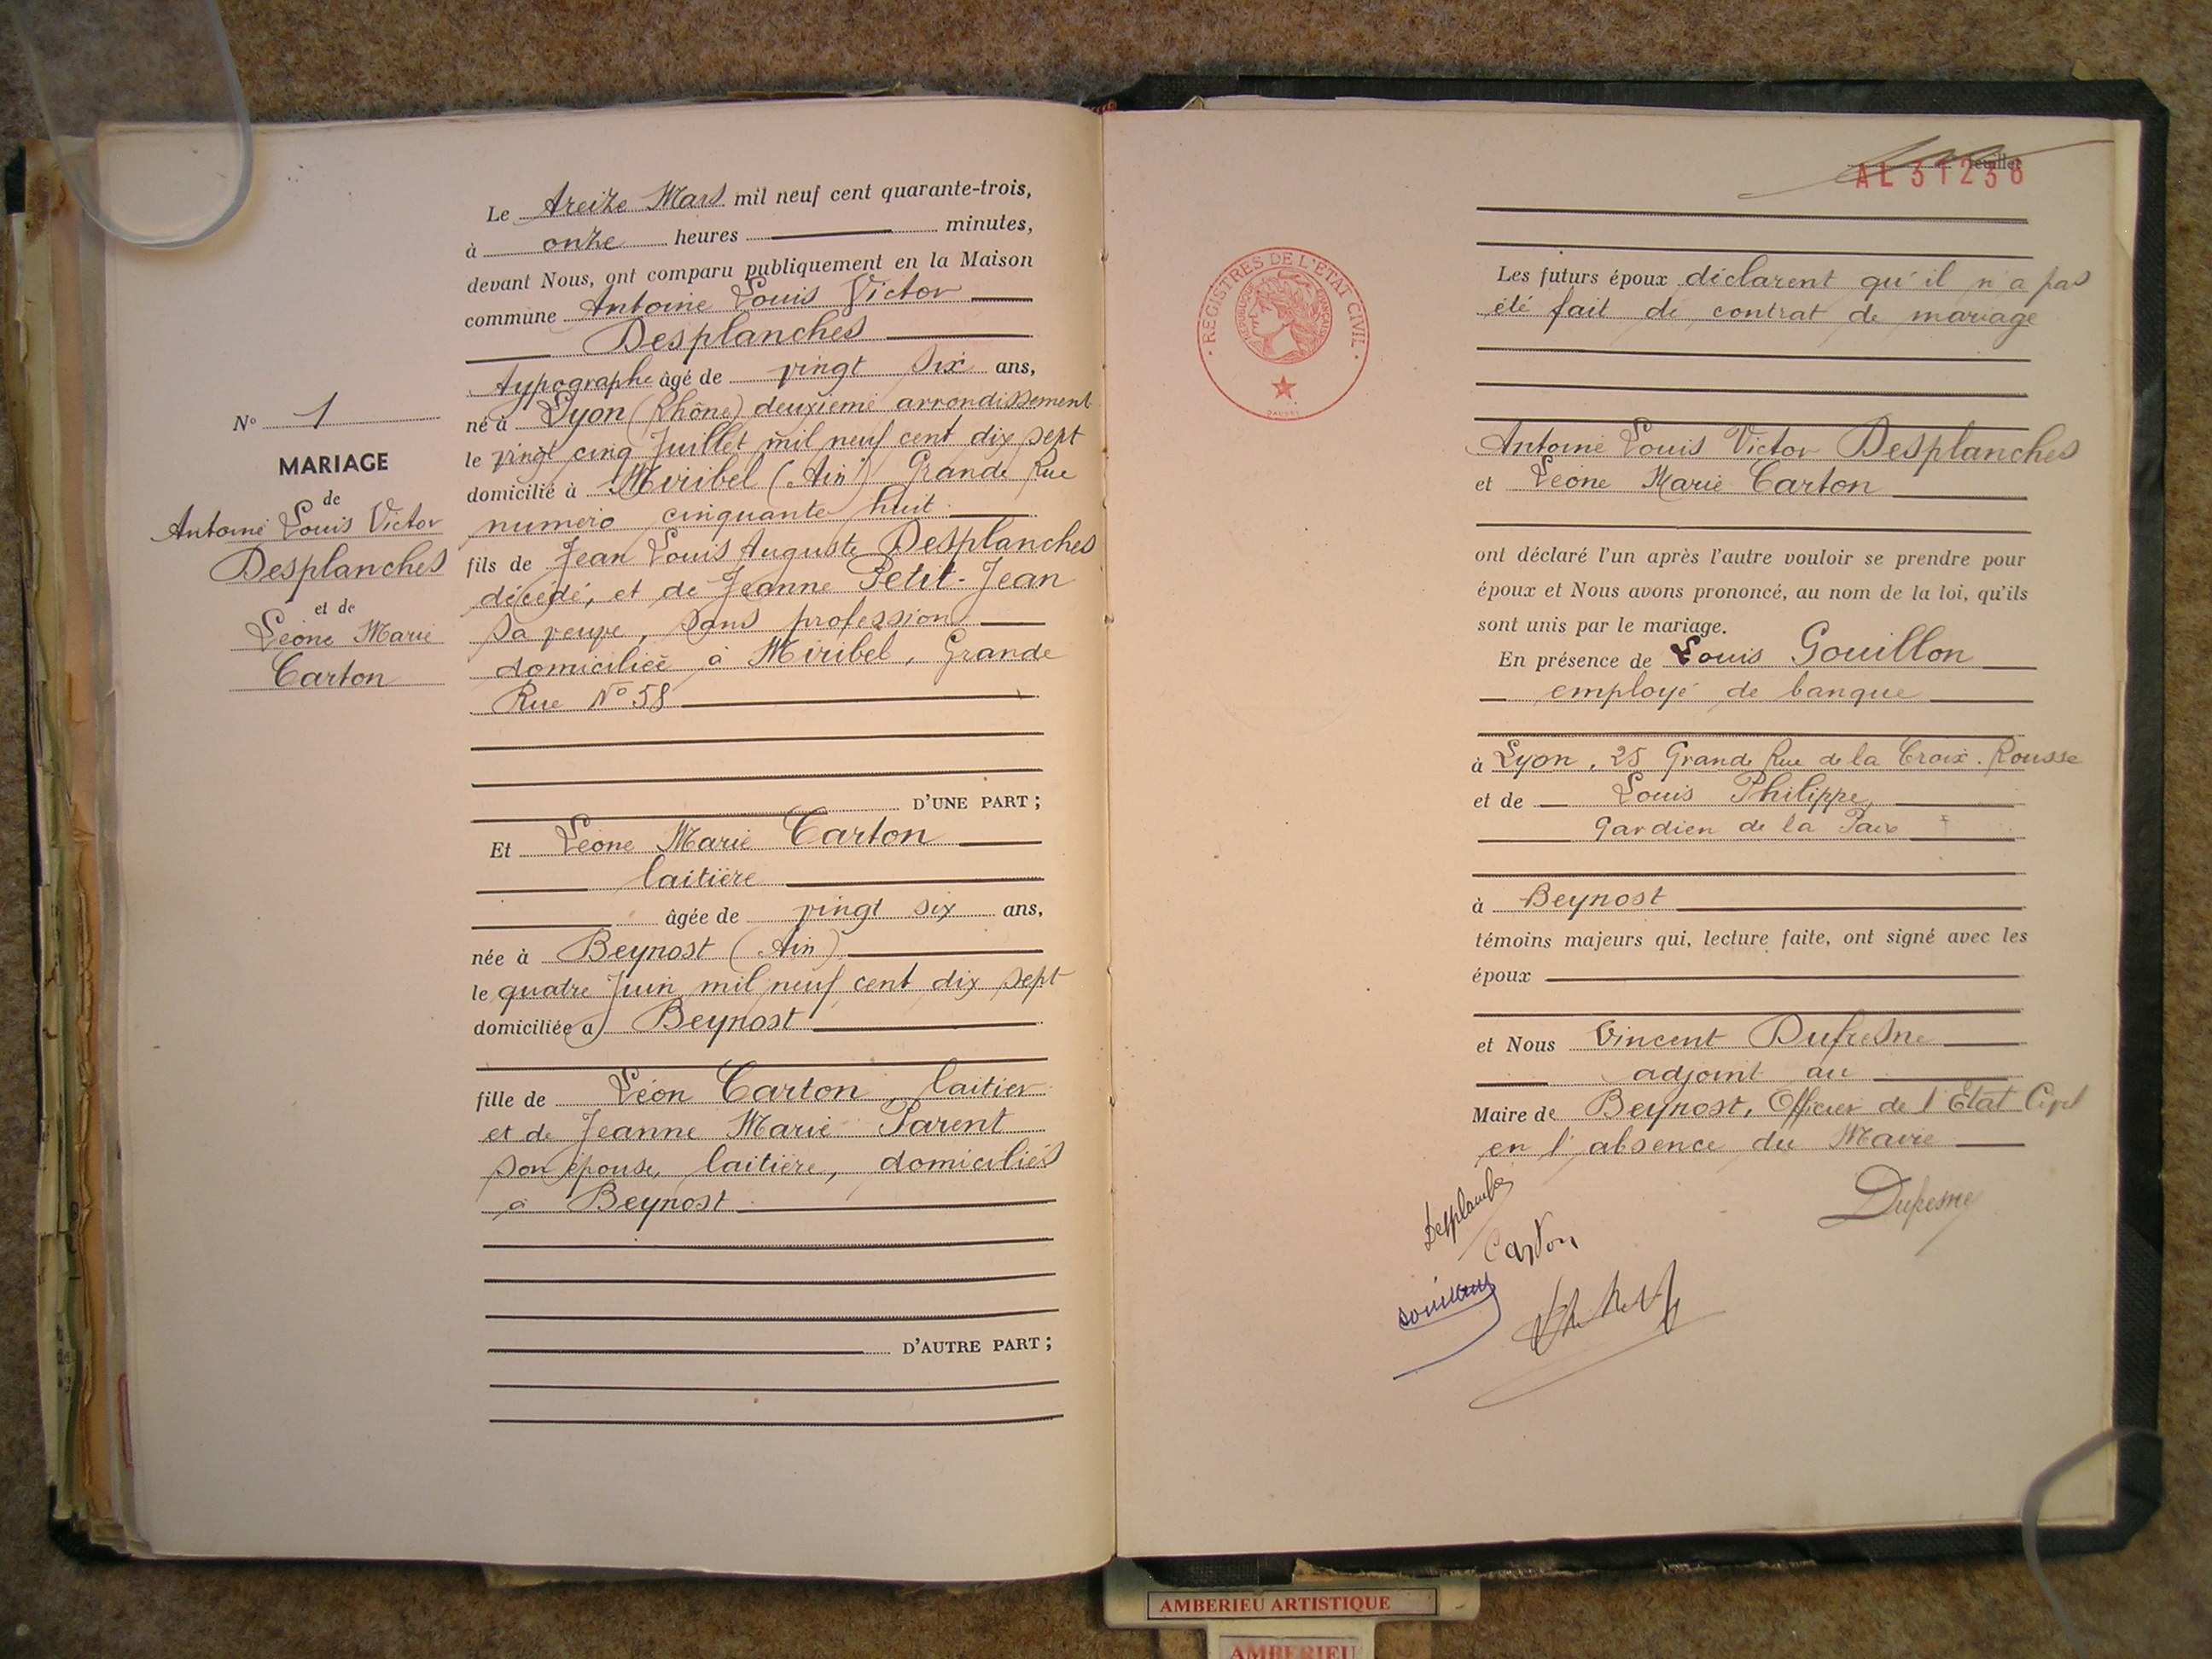 Le treize Mars mil neuf cent quarante-trois,
à onze heures minutes,
devant Nous, ont comparu publiquement en la Maison
commune Antoine Louis Victor
Desplanches
typographe âgé de vingt six ans,
né à Lyon (Rhône) deuxième arrondissement
le vingt cinq Juillet mil neuf cent dix sept
domicilié à Miribel (Ain) Grande Rue
numéro cinquante huit
fils de Jean Louis Auguste Desplanches
décédé, et de Jeanne Petit-Jean
sa veuve, sans profession
domiciliée à Miribel, Grande
Rue N° 58
D'UNE PART ;
Et Léone Marie Carton
laitière
âgée de vingt six ans,
née à Beynost (Ain)
le quatre Juin mil neuf cent dix sept
domiciliée à Beynost
fille de Léon Carton, laitier
et de Jeanne Marie Parent
son épouse, laitière, domiciliés
à Beynost
D'AUTRE PART ;
N° 1
MARIAGE
de
Antoine Louis Victor
Desplanches
et de
Léone Marie
Carton
feuillet
AL 31236
REGISTRES DE L'ETAT CIVIL
REPUBLIQUE FRANÇAISE
Les futurs époux déclarent qu'il n'a pas
été fait de contrat de mariage
Antoine Louis Victor Desplanches
et Léone Marie Carton
ont déclaré l'un après l'autre vouloir se prendre pour
époux et Nous avons prononcé, au nom de la loi, qu'ils
sont unis par le mariage.
En présence de Louis Gouillon
employé de banque
à Lyon, 25 Grande Rue de la Croix-Rousse
et de Louis Philippe,
Gardien de la Paix
à Beynost
témoins majeurs qui, lecture faite, ont signé avec les
époux
et Nous Vincent Dufresne
adjoint au
Maire de Beynost, Officier de l'Etat Civil
en l'absence du Maire
Desplanches
Dufresne
Carton
AMBERIEU ARTISTIQUE
AMBERIEU